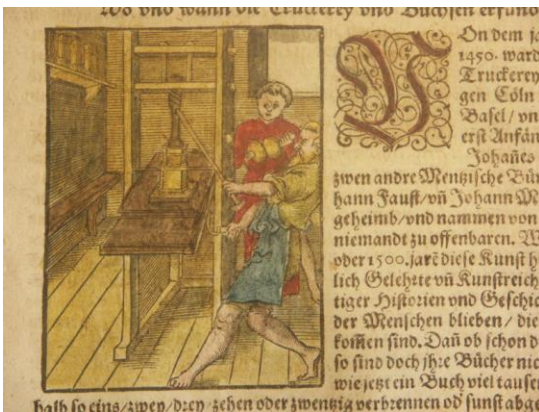 Wo vnd wann die Truckerey vnd Büchsen erfund
VOn dem ja
1450. ward
Truckerey
gen Cöln
Basel / vn
erst Anfän
Johañes
zwen andre Mentzische Bür
hann Faust / vñ Johann Me
geheimb / vnd nammen von
niemandt zu offenbaren. W
oder 1500. jarē diese Kunst h
lich Gelehrte vñ Kunstreich
tiger Historien vnd Geschic
der Menschen blieben / die
kom̃en sind. Dañ ob schon d
so sind doch jhre Bücher nic
wie jetzt ein Buch viel tausen
halb so eins / zwey / drey / zehen oder zwentzig verbrennen od sunst abge